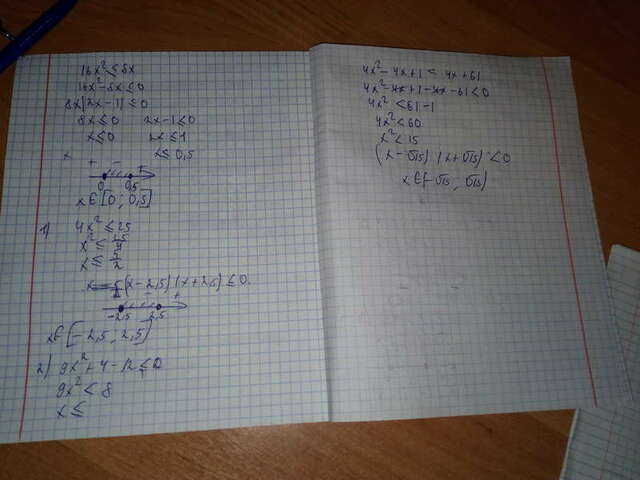 16x² ≤ 8x
16x² - 8x ≤ 0
8x(2x - 1) ≤ 0
8x ≤ 0 2x - 1 ≤ 0
x ≤ 0 2x ≤ 1
x x ≤ 0,5
+ - +
0 0,5
x ∈ [0; 0,5]
1) 4x² ≤ 25
x² ≤ 25/4
x ≤ 5/2
(x - 2,5)(x + 2,5) ≤ 0.
- +
-2,5 2,5
x ∈ [-2,5; 2,5]
2) 9x² + 4 - 12 ≤ 0
9x² < 8
x ≤
4x² - 4x + 1 < 4x + 61
4x² - 4x + 1 - 4x - 61 < 0
4x² < 61 - 1
4x² < 60
x² < 15
(x - √15)(x + √15) < 0
x ∈ (-√15; √15)